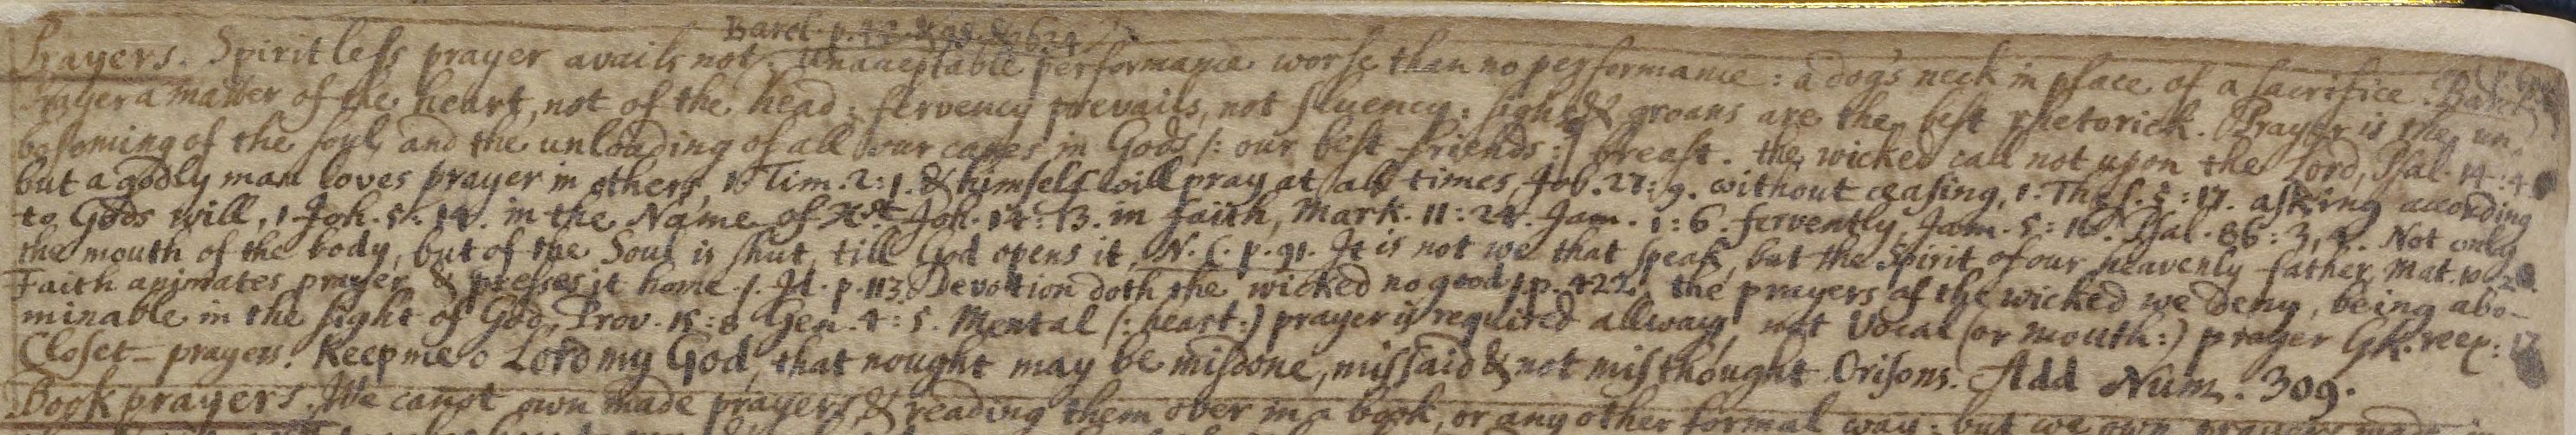 Barcl. p.
Prayers. Spiritless prayer avails not. Unacceptable performance worse then no performance: a dog's neck in place of a sacrifice. Barcl.
Prayer a matter of the heart, not of the head: fervency prevails, not fluency: sighs & groans are the best rhetorick. Prayer is the un-
bosoming of the soul, and the unloading of all our cares in Gods /: our best friends :/ breast. the wicked call not upon the Lord, Psal. 14:4
but a godly man loves prayer in others, 1 Tim. 2:1. & himself will pray at all times, Job. 27:9. without ceasing, 1. Thes. 5:17. asking according
to Gods will, 1 Joh. 5:14. in the Name of Xst Joh. 14:13. in faith, Mark. 11:24. Jam. 1:6. fervently, Jam. 5:16. Psal. 86:3,4. Not only
the mouth of the body, but of the Soul is shut, till God opens it, N. C. p. 91. It is not we that speak, but the Spirit of our heavenly father, Mat. 10:20.
Faith animates prayer & presses it home. /. Id. p. 113. Devotion doth the wicked no good, p. 422. the prayers of the wicked we deny, being abo-
minable in the sight of God, Prov. 15:8 Gen. 4:5. Mental (: heart:) prayer is required allways, not Vocal (or mouth:) prayer GK.
Closet-prayers. Keep me o Lord my God, that nought may be misdone, missaid & not misthought Orisons. Add Num. 309.
Book prayers. We canot own made prayers, & reading them over in a book, or any other formal way: but we own prayers made in